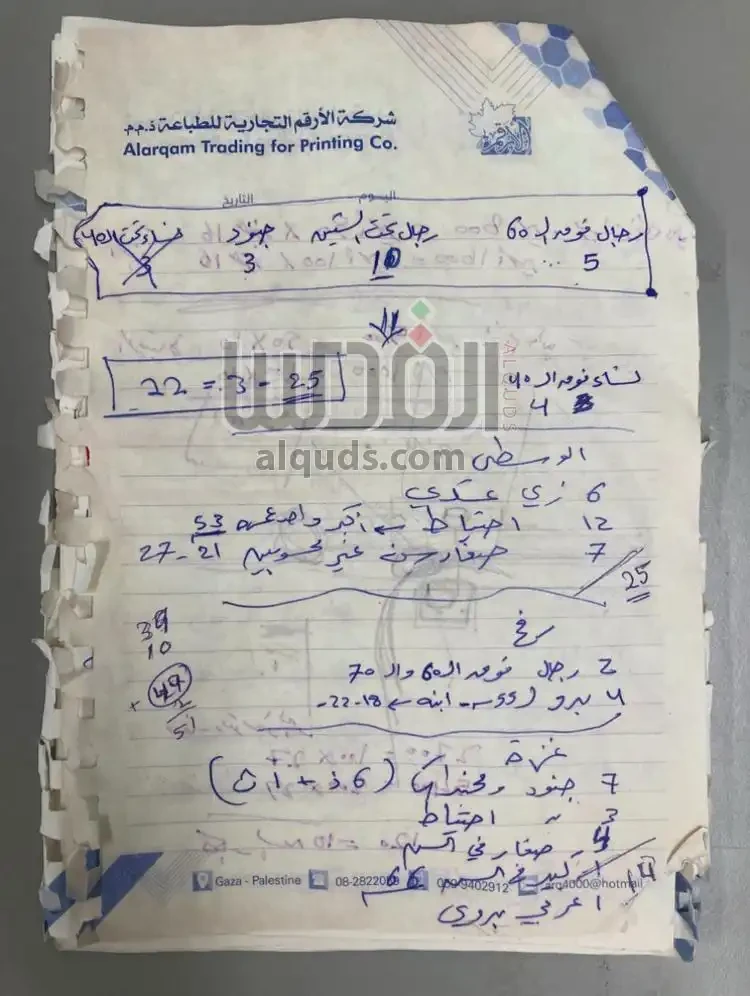 شركة الأرقم التجارية للطباعة ذ.م.م
Alarqam Trading for Printing Co.
الأرقم
اليوم التاريخ
رجال فوق الـ 60 رجال تحت الستين جنود نساء تحت الـ 40
5 10 3 3
القدس
ALQUDS
alquds.com
نساء فوق الـ 40
4
25 - 3 = 22
الوسطى
6 زي عسكري
12 احتياط ← أكبر واحد عمره 53
7 صغار سن غير محسوبين 21 - 27
25
رفح
39
10
49
2
51
2 رجال فوق الـ 60 والـ 70
4 بدو ( 55 س - ابنه ← 18-22-
غزة
7 جنود ومجندات (6 ذ + 1 ث)
3 " احتياط
4 صغار في السن
1 كبير في السن 66
14
1 عربي بدوي
Gaza - Palestine 08-2822 059-9402912 arq4000@hotmail